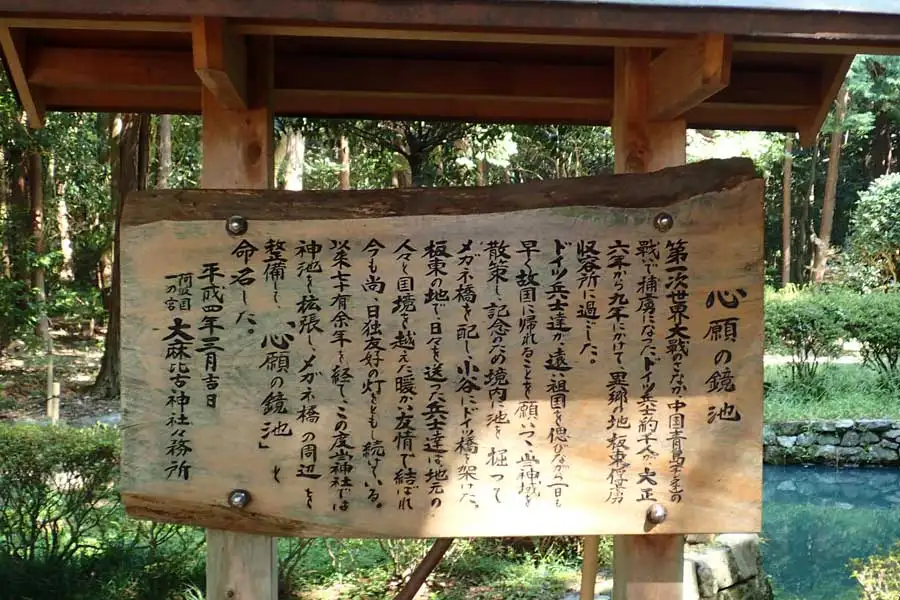 心願の鏡池
第一次世界大戦のさなか中国青島チンタオの
戦で捕虜になったドイツ兵士約千人が大正
六年から九年にかけて異郷の地板東俘虜
収容所に過ごした。
ドイツ兵士達が遠い祖国を偲びながら一日も
早く故国に帰れることを願いつつ当神域を
散策し、記念のため境内に池を掘って
メガネ橋を配し、小谷にドイツ橋を架けた。
板東の地で日々を送った兵士達と地元の
人々と国境を越えた暖かい友情で結ばれ
今も尚、日独友好の灯をともし続けている。
以来七十有余年を経てこの度当神社では
神池を拡張し、メガネ橋の周辺を
整備して、「心願の鏡池」と
命名した。
平成四年三月吉日
阿波国一の宮 大麻比古神社公務所